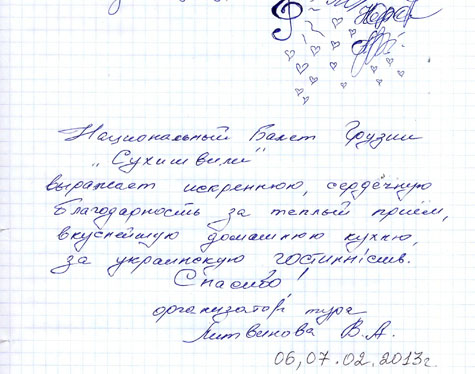 Национальный Балет Грузии
„Сухишвили"
выражает искреннюю, сердечную
благодарность за теплый приём,
вкуснейшую домашнюю кухню,
за украинскую гостиннісив.
Спасибо!
организатор тура
Литвинова В.А.
06,07.02.2013г.